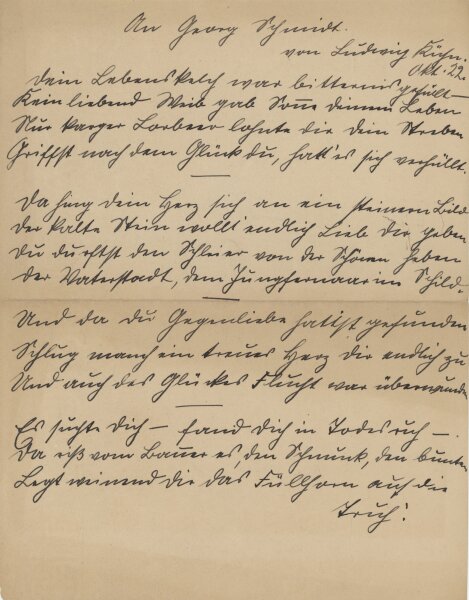 An Georg Schmidt.
von Ludwig Kühn.
Okt. 22.
Dein Lebenskelch war bitternisgefüllt –
Kein liebend Weib gab Sonne deinem Leben
Nur karger Lorbeer lohnte dir dein Streben
Griffst nach dem Glück du, hatt' es sich verhüllt.
Da hing dein Herz sich an ein steinern Bild
der kalte Stein wollt endlich Lieb dir geben
du durftst den Schleier von der Schönen heben
der Vaterstadt, dem Jungfernaar im Schild.
Und da du Gegenliebe hattst gefunden
Schlug manch ein treues Herz dir endlich zu
Und auch des Glückes Flucht war überwunden
Es suchte dich – fand dich in Todesruh –
Da riß vom Bauer es, den Schmuck, den bunten
Legt weinend dir das Füllhorn auf die
Truh'.